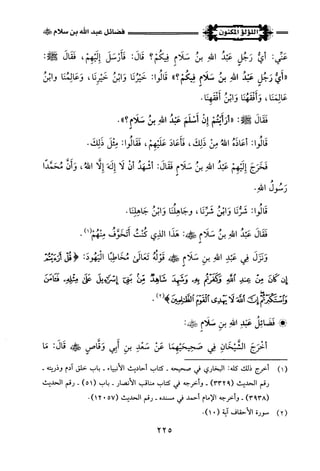 فضائل عبد الله بن سلام ﷺ
اللؤلؤ المكنون
عَنِّي: أَيُّ رَجُلٍ عَبْدُ اللهِ بنُ سَلَامٍ فِيكُمْ؟ قَالَ: فَأَرْسَلَ إِلَيْهِمْ، فَقَالَ ﷺ:
«أَيُّ رَجُلٍ عَبْدُ اللهِ بنُ سَلَامٍ فِيكُمْ؟» قَالُوا: خَيْرُنَا وَابْنُ خَيْرِنَا، وَعَالِمُنَا وَابْنُ
عَالِمِنَا، وَأَفْقَهُنَا وَابْنُ أَفْقَهِنَا.
فَقَالَ ﷺ: «أَرَأَيْتُمْ إِنْ أَسْلَمَ عَبْدُ اللهِ بنُ سَلَامٍ؟».
قَالُوا: أَعَاذَهُ اللهُ مِنْ ذَلِكَ، فَأَعَادَ عَلَيْهِمْ، فَقَالُوا: مِثْلَ ذَلِكَ.
فَخَرَجَ إِلَيْهِمْ عَبْدُ اللهِ بنُ سَلَامٍ فَقَالَ: أَشْهَدُ أَنْ لَا إِلَهَ إِلَّا اللهُ، وَأَنَّ مُحَمَّدًا
رَسُولُ اللهِ.
قَالُوا: شَرُّنَا وَابْنُ شَرِّنَا، وجَاهِلُنَا وَابْنُ جَاهِلِنَا.
فَقَالَ عَبْدُ اللهِ بنُ سَلَامٍ ﷺ: هَذَا الذِي كُنْتُ أَتَخَوَّفُ مِنْهُمْ(١).
وَنَزَلَ فِي عَبْدِ اللهِ بنِ سَلَامٍ ﷺ قَوْلُهُ تَعَالَى مُخَاطِبًا الْيَهُودَ: ﴿قُلْ أَرَءَيْتُمْ
إِن كَانَ مِنْ عِندِ اللَّهِ وَكَفَرْتُم بِهِۦ وَشَهِدَ شَاهِدٌ مِّنۢ بَنِىٓ إِسْرَٰٓءِيلَ عَلَىٰ مِثْلِهِۦ فَـَٔامَنَ
وَاسْتَكْبَرْتُمْ إِنَّ اللَّهَ لَا يَهْدِى الْقَوْمَ الظَّٰلِمِينَ﴾(٢).
◉ فَضَائِلُ عَبْدِ اللهِ بنِ سَلَامٍ ﷺ:
أَخْرَجَ الشَّيْخَانِ فِي صَحِيحَيْهِمَا عَنْ سَعْدِ بنِ أَبِي وَقَّاصٍ ﷺ قَالَ: مَا
(١) أخرج ذلك كله: البخاري في صحيحه ـ كتاب أحاديث الأنبياء ـ باب خلق آدم وذريته ـ
رقم الحديث (٣٣٢٩) ـ وأخرجه في كتاب مناقب الأنصار ـ باب (٥١) ـ رقم الحديث
(٣٩٣٨) ـ وأخرجه الإمام أحمد في مسنده ـ رقم الحديث (١٢٠٥٧).
(٢) سورة الأحقاف آية (١٠).
٢٢٥